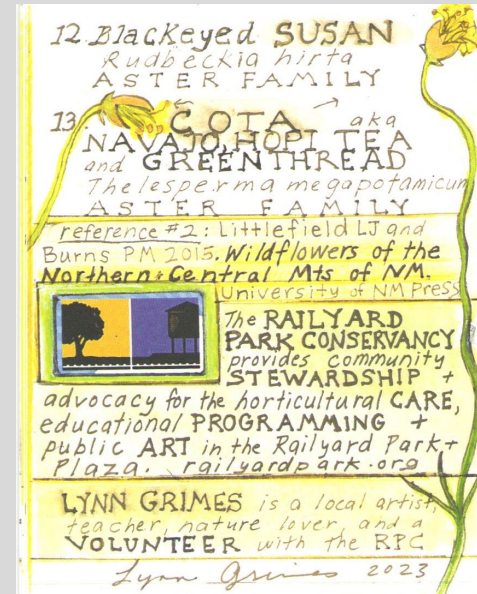 12. Blackeyed SUSAN
Rudbeckia hirta
ASTER FAMILY
13. COTA aka
NAVAJO, HOPI TEA
and GREENTHREAD
Thelesperma megapotamicum
ASTER FAMILY
reference #2: Littlefield LJ and
Burns PM 2015. Wildflowers of the
Northern + Central Mts of NM.
University of NM Press
The RAILYARD
PARK CONSERVANCY
provides community
STEWARDSHIP +
advocacy for the horticultural CARE,
educational PROGRAMMING +
public ART in the Railyard Park +
Plaza. railyardpark.org
LYNN GRIMES is a local artist,
teacher, nature lover, and a
VOLUNTEER with the RPC
Lynn Grimes 2023